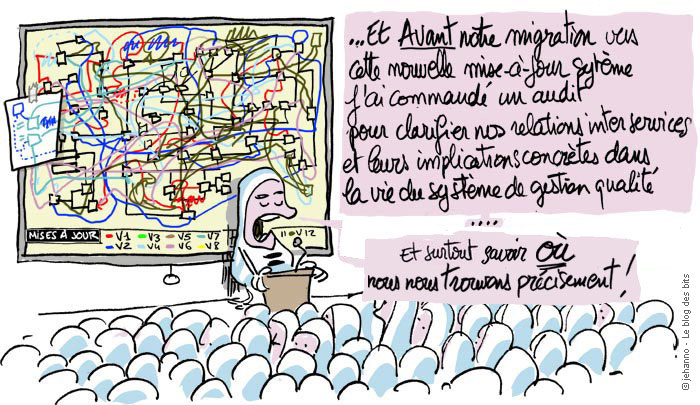 ...Et Avant notre migration vers
cette nouvelle mise-à-jour système
j'ai commandé un audit
pour clarifier nos relations inter services
et leurs implications concrètes dans
la vie du système de gestion qualité
....
Et surtout savoir où
nous nous trouvons précisément!
MISES À JOUR
V1 V3 V5 V7
V2 V4 V6 V8
V12
© Jehanno - Le blog des bits